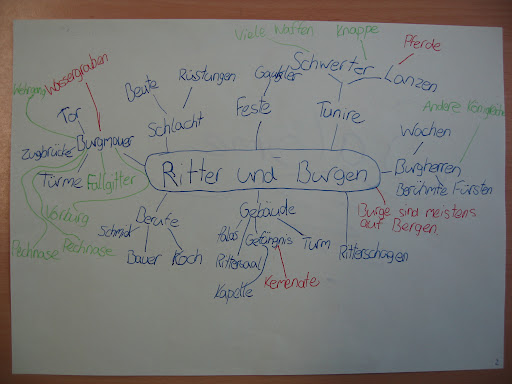 Viele Waffen
Knappe
Pferde
Schwerter
Lanzen
Gaukler
Rüstungen
Beute
Wassergraben
Wehrgang
Tor
Schlacht
Feste
Tunire
Andere Königreiche
Wachen
Burgmauer
Zugbrücke
Ritter und Burgen
Burgherren
Berühmte Fürsten
Türme
Fallgitter
Vorburg
Pechnase
Pechnase
Berufe
Schmid
Bauer
Koch
Gebäude
Palas
Gefängnis
Turm
Rittersaal
Kapelle
Kemenate
Burge sind meistens
auf Bergen.
Ritterschagen
2